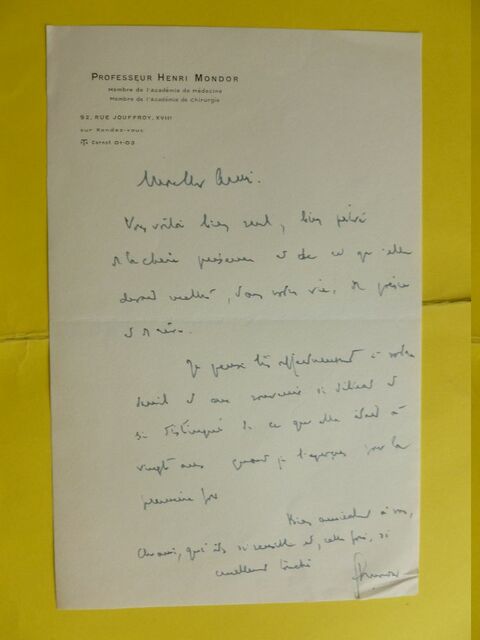 PROFESSEUR HENRI MONDOR
Membre de l'académie de Médecine
Membre de l'Académie de Chirurgie
92, RUE JOUFFROY, XVIII
sur Rendez-vous
Carnot 01-03
Mon cher ami.
Vous voilà bien seul, bien privé
de la chère présence et de ce qu'elle
dans votre vie, de
et de
Je pense très affectueusement à votre
deuil et aux souvenirs si délicat et
si distingué de ce qu'elle était à
vingt ans quand je l'aperçus pour la
première fois
Bien amicalement à vous,
cher ami, qui êtes si sensible et, cette fois, si
cruellement touché